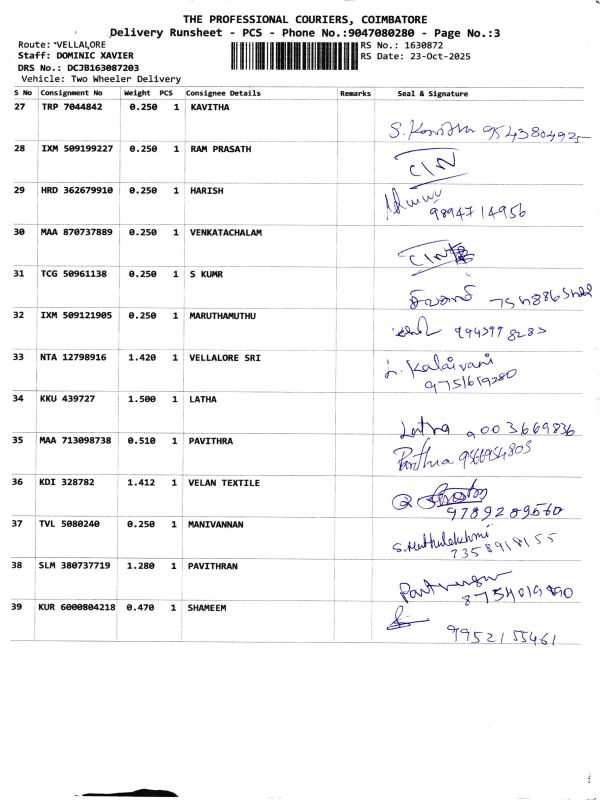 THE PROFESSIONAL COURIERS, COIMBATORE
Delivery Runsheet - PCS - Phone No.:9047080280 - Page No.:3
Route: *VELLALORE
RS No.: 1630872
Staff: DOMINIC XAVIER
RS Date: 23-Oct-2025
DRS No.: DCJB163087203
Vehicle: Two Wheeler Delivery
S No Consignment No Weight PCS Consignee Details Remarks Seal & Signature
27 TRP 7044842 0.250 1 KAVITHA
S. Kavitha 9543804925
28 IXM 509199227 0.250 1 RAM PRASATH
CIN
29 HRD 362679910 0.250 1 HARISH
9894714956
30 MAA 870737889 0.250 1 VENKATACHALAM
CIN
31 TCG 50961138 0.250 1 S KUMR
32 IXM 509121905 0.250 1 MARUTHAMUTHU
9943998283
33 NTA 12798916 1.420 1 VELLALORE SRI
Kalaivani
9751619280
34 KKU 439727 1.500 1 LATHA
Latha 9003669836
35 MAA 713098738 0.510 1 PAVITHRA
9566954803
36 KDI 328782 1.412 1 VELAN TEXTILE
9789289560
37 TVL 5080240 0.250 1 MANIVANNAN
S. Muthulakshmi
7358918155
38 SLM 380737719 1.280 1 PAVITHRAN
39 KUR 6000804218 0.470 1 SHAMEEM
9952155461